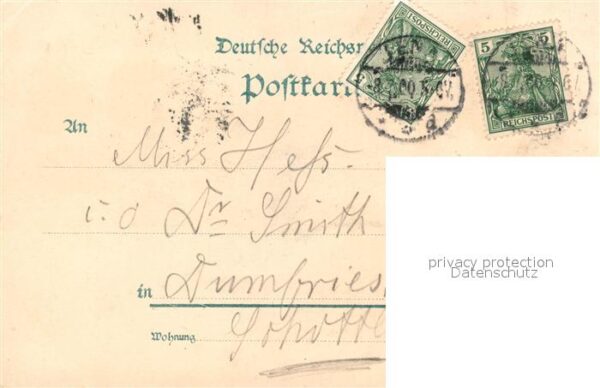 Deutsche Reichs
Postkar
5 5
REICHSPOST
REICHSPOST
An
Miss Hess.
i. d Dr Smith
in Dumfries,
Wohnung Schottl
privacy protection
Datenschutz